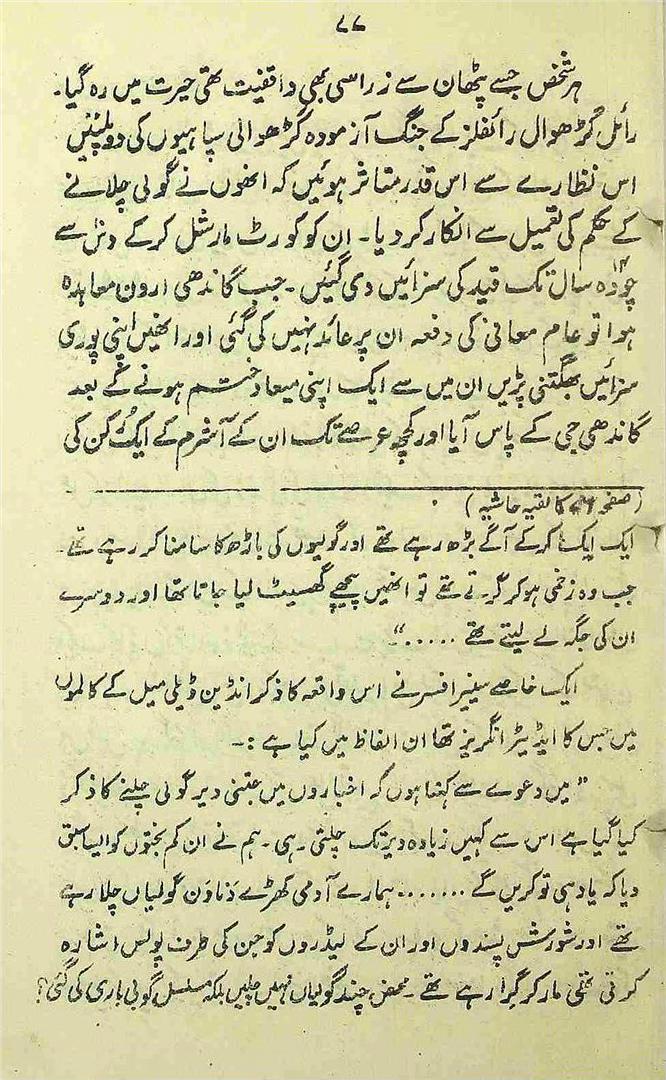 ۷۷
ہر شخص جسے پٹھان سے ذرا سی بھی واقفیت تھی حیرت میں رہ گیا۔
رائل گڑھوال رائفلز کے جنگ آزمودہ گڑھوالی سپاہیوں کی دو پلٹنیں
اس نظارے سے اس قدر متاثر ہوئیں کہ انھوں نے گولی چلانے
کے حکم کی تعمیل سے انکار کر دیا۔ ان کو کورٹ مارشل کر کے دس سے
چودہ سال تک قید کی سزائیں دی گئیں۔ جب گاندھی ارون معاہدہ
ہوا تو عام معافی کی دفعہ ان پر عائد نہیں کی گئی اور انھیں اپنی پوری
سزائیں بھگتنی پڑیں ان میں سے ایک اپنی میعاد ختم ہونے کے بعد
گاندھی جی کے پاس آیا اور کچھ عرصے تک ان کے آشرم کے ایک رکن کی
(صفحہ ۷۶ کا بقیہ حاشیہ)
ایک ایک کر کے آگے بڑھ رہے تھے اور گولیوں کی باڑھ کا سامنا کر رہے تھے۔
جب وہ زخمی ہو کر گرتے تھے تو انھیں پیچھے گھسیٹ لیا جاتا تھا اور دوسرے
ان کی جگہ لے لیتے تھے .....“
ایک خاصے سینیر افسر نے اس واقعہ کا ذکر انڈین ڈیلی میل کے کالموں
میں جس کا ایڈیٹر انگریز تھا ان الفاظ میں کیا ہے :۔
”میں دعوے سے کہتا ہوں کہ اخباروں میں جتنی دیر گولی چلنے کا ذکر
کیا گیا ہے اس سے کہیں زیادہ دیر تک چلتی رہی۔ ہم نے ان کم بختوں کو ایسا سبق
دیا کہ یاد ہی تو کریں گے ....... ہمارے آدمی کھڑے دنادن گولیاں چلا رہے
تھے اور شورش پسندوں اور ان کے لیڈروں کو جن کی طرف پولس اشارہ
کرتی تھی مار کر گرا رہے تھے۔ محض چند گولیاں نہیں چلیں بلکہ مسلسل گولی باری کی گئی؟